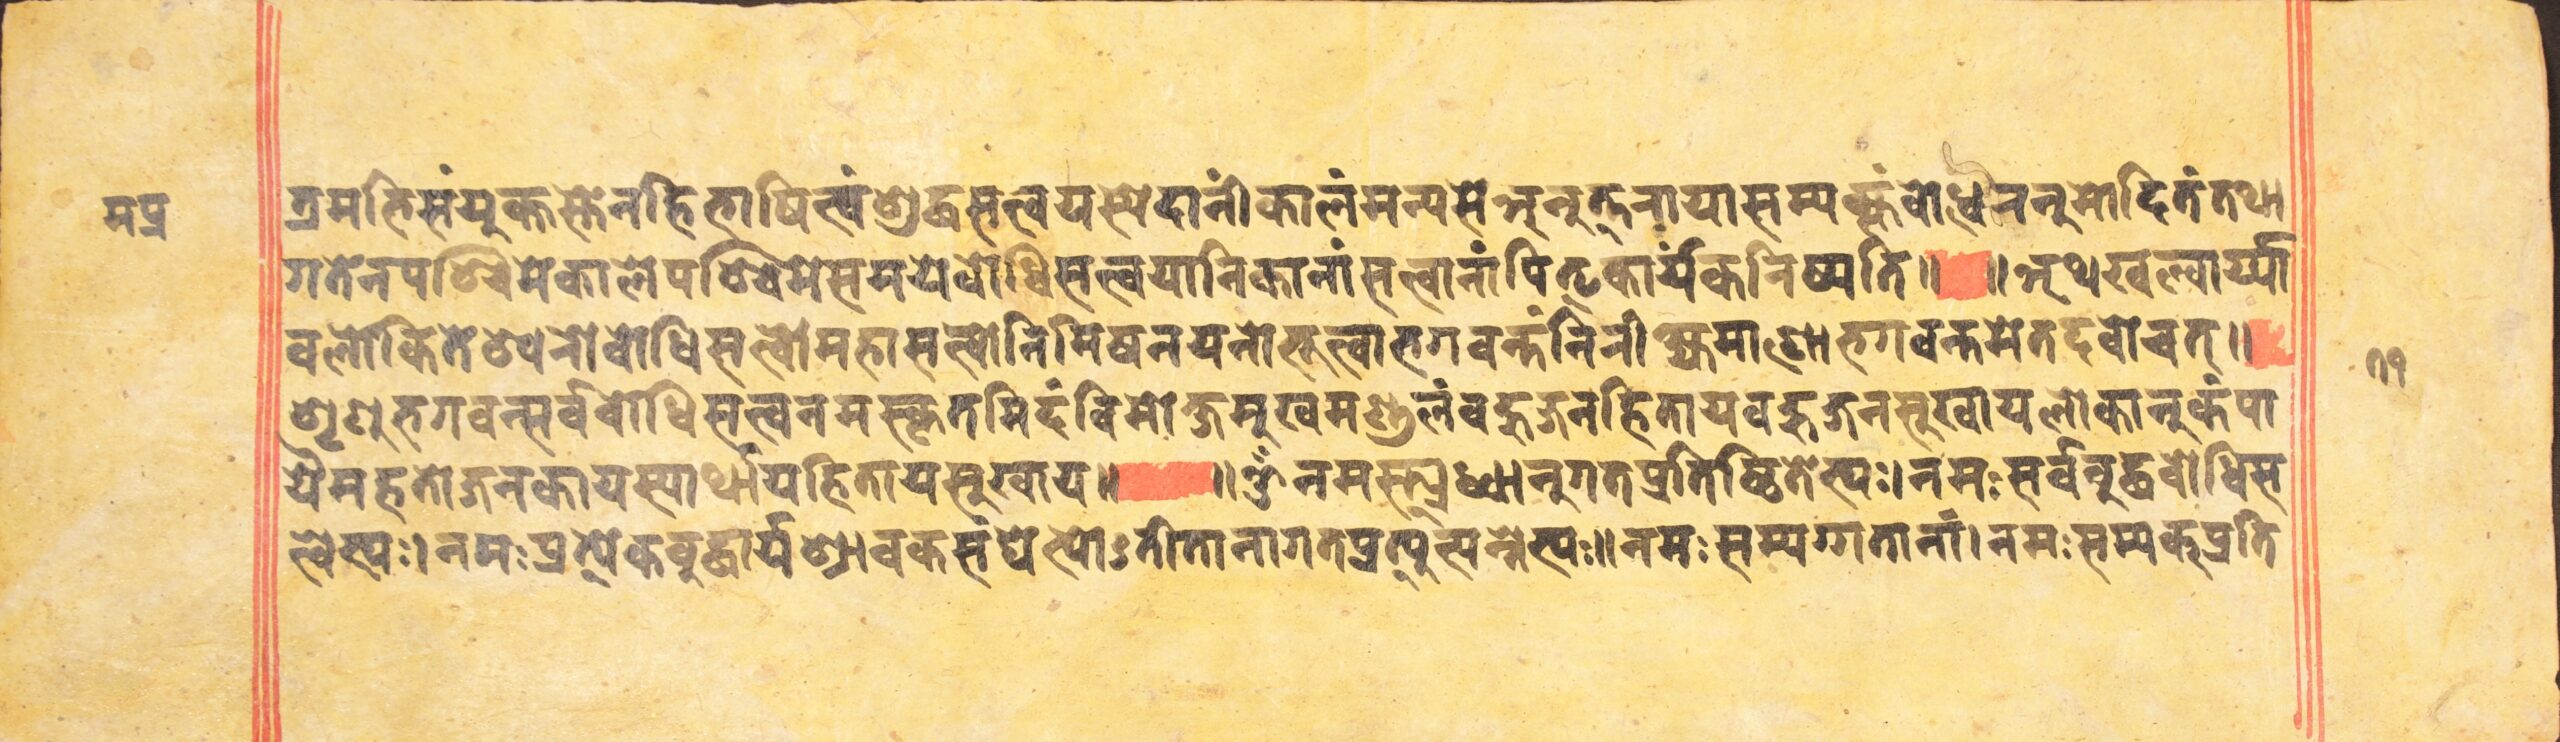 मप्र
त्रमतिसंयुक्तस्तेन हि भाषि त्वं शुद्धसत्व यस्येदानीं कालं मन्यसे अनुत्तरायासम्यक्संबोधेरनुमोदितं तथा
गतेन पश्चिमे काले पश्चिमे समये बोधिसत्वयानिकानां सत्वानां पितृकार्यं करिष्यति॥ ॥अथ खल्वार्य्या
वलोकितेश्वरो बोधिसत्वो महासत्वोनिमिषनयनो भूत्वा भगवन्तं निरीक्ष्यमाणो भगवन्तमेतदवोचत्॥
शृणु भगवन्सर्वबोधिसत्वनमस्कृतमिदं विमोक्षमुखमण्डलं बहुजनहिताय बहुजनसुखाय लोकानुकंपा
यै महतो जनकायस्यार्थाय हिताय सुखाय॥ ॥ॐ नमस्त्र्यध्वानुगतप्रतिष्ठितेभ्यः। नमः सर्वबुद्धबोधिस
त्वेभ्यः। नमः प्रत्येकबुद्धार्यश्रावकसंघेभ्योऽतीतानागतप्रत्युत्पन्नेभ्यः॥ नमः सम्यग्गतानां। नमः सम्यक्प्रति